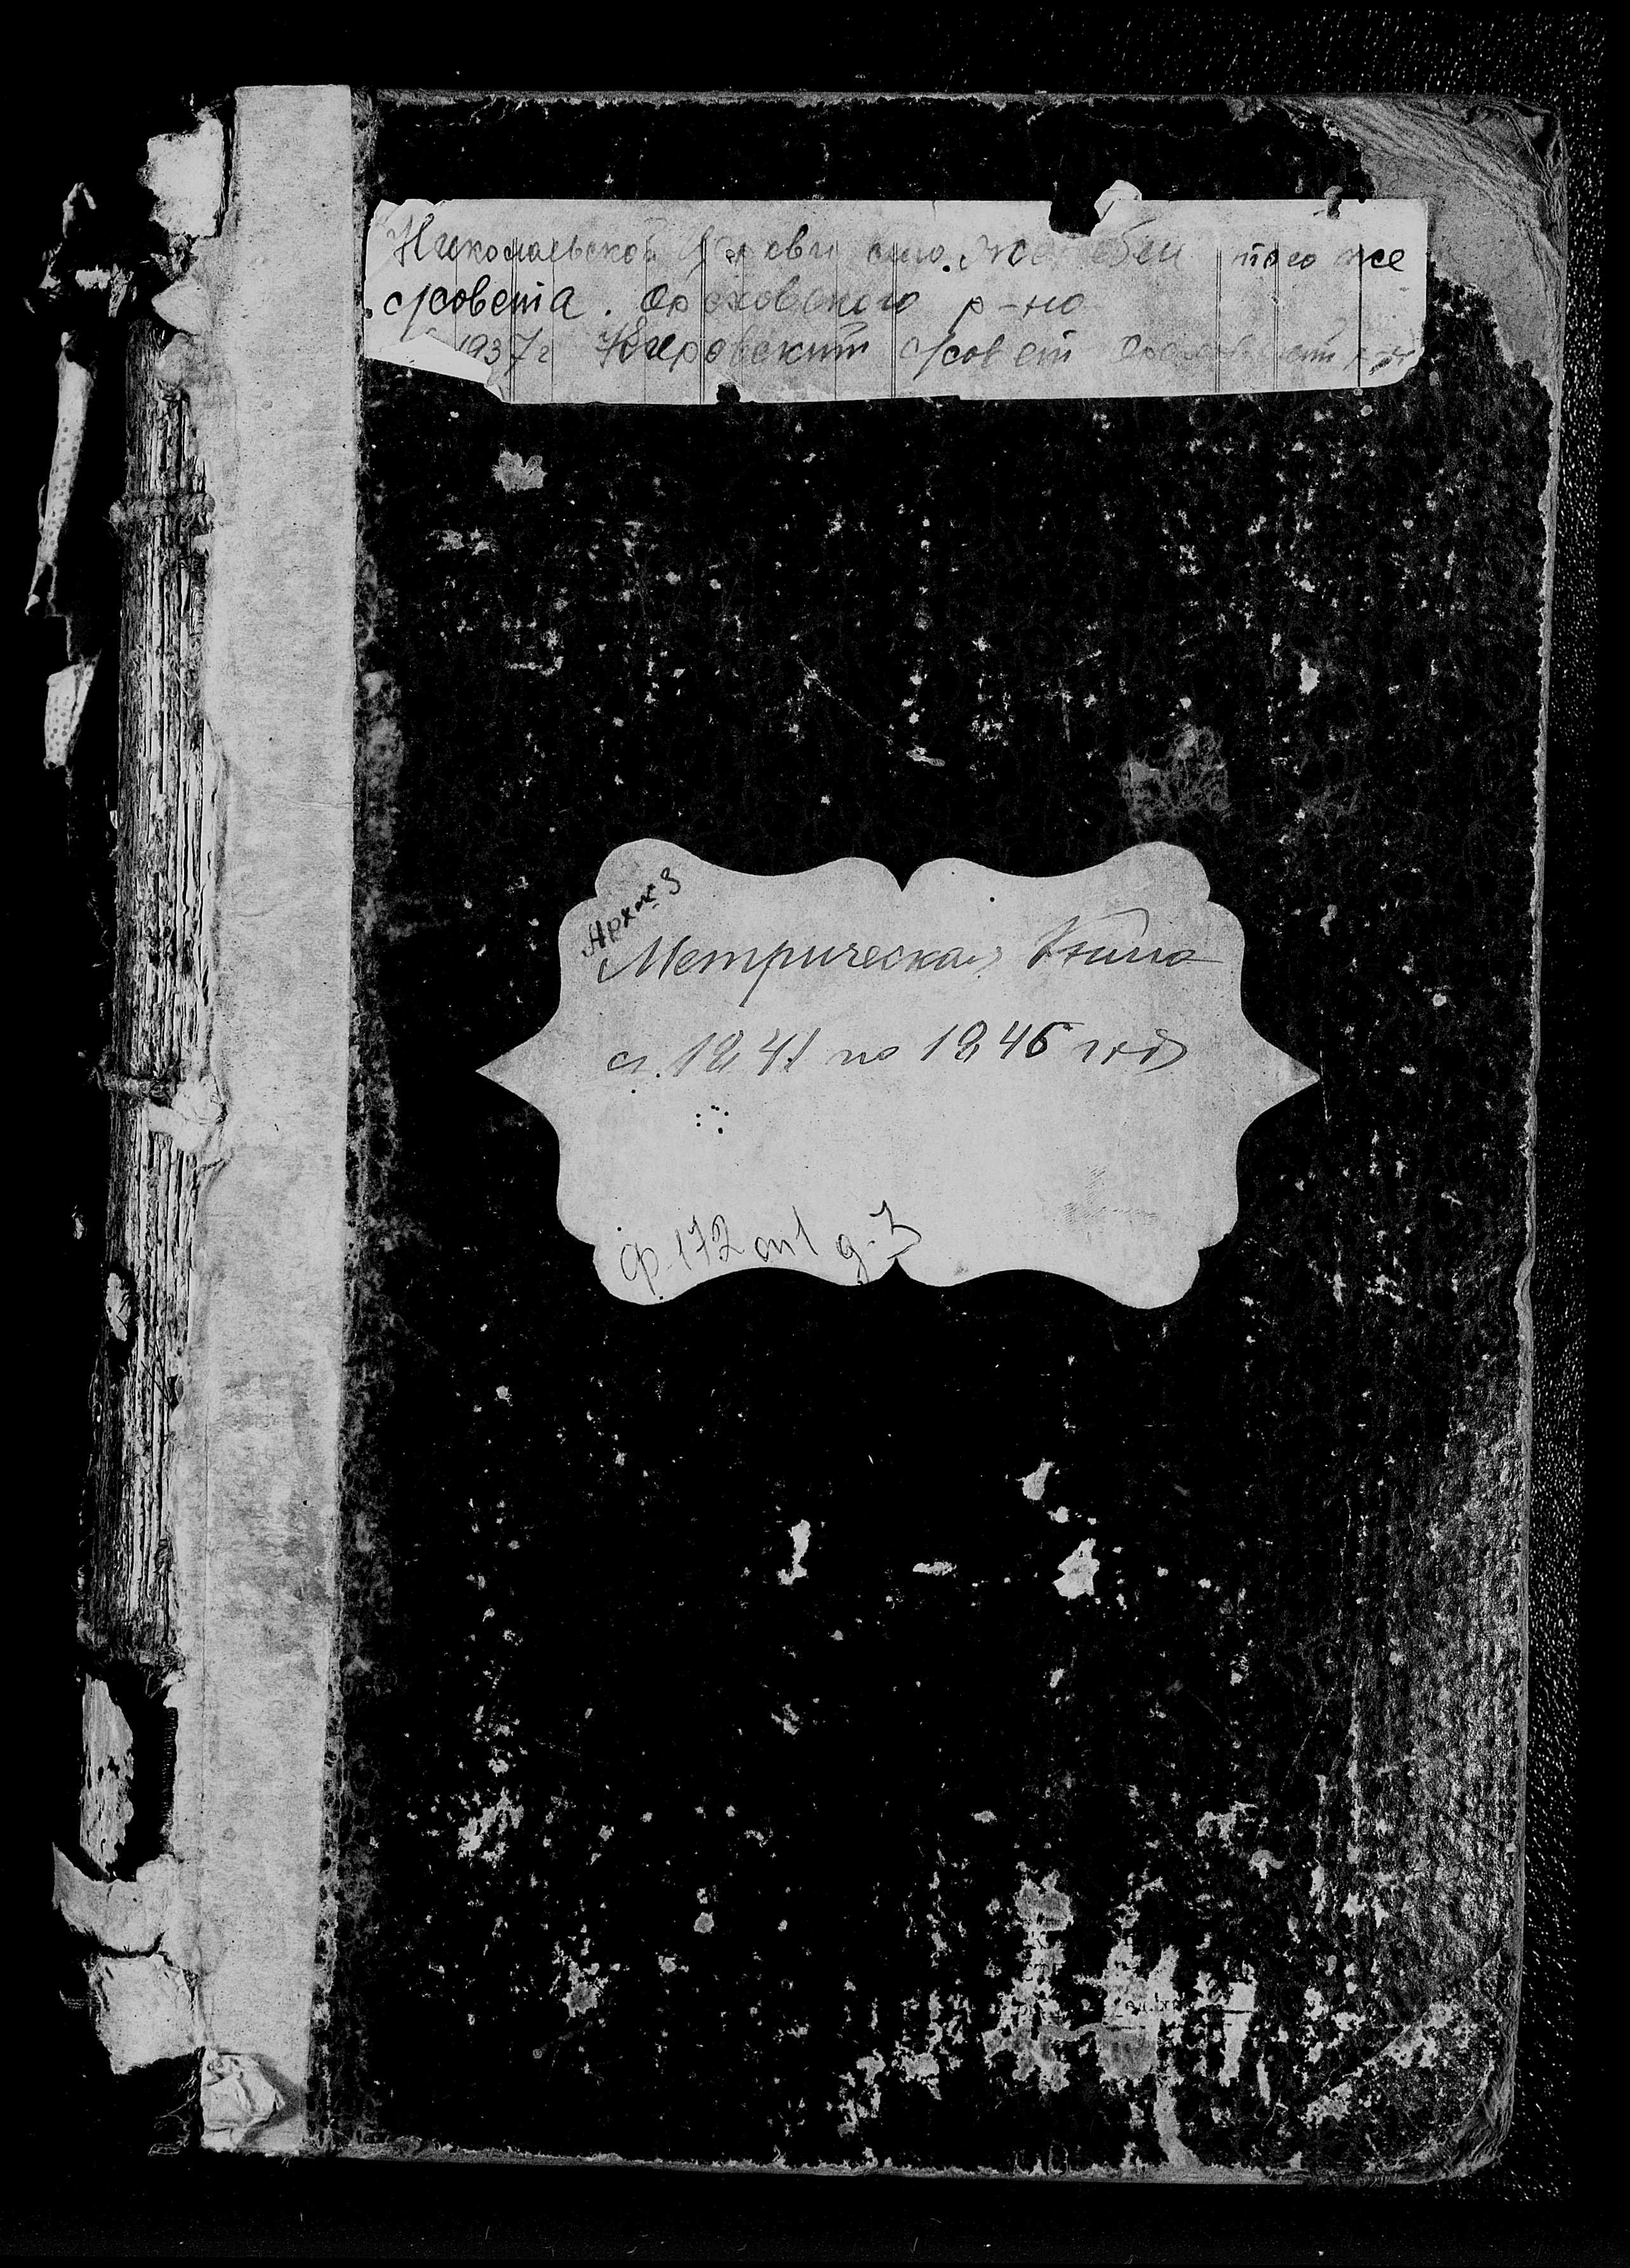 Николаевской Церкви села Жеребец того же
с/совета. Ореховского р-на
1937 г Кировский с/совет Ореховский р-н
Арх № 3
Метрическая Книга
с 1841 по 1846 годъ
ф. 172 оп 1 д. 3